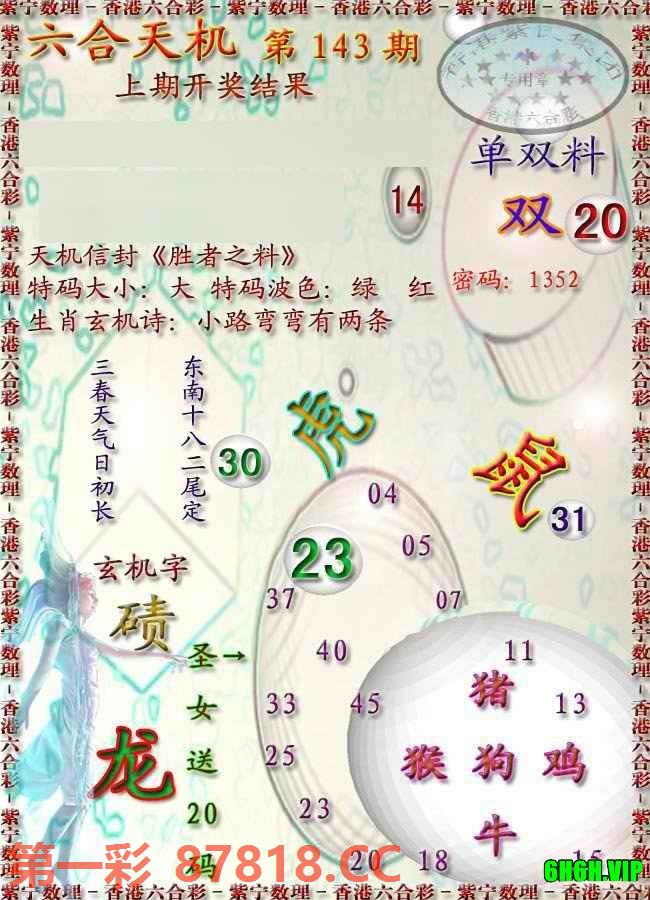 紫宁数理－香港六合彩－紫宁数理－香港六合彩－紫宁数理－香港六合彩
六合天机 第 143 期
上期开奖结果
专用章
香港六合彩
单双料
双 20
14
天机信封《胜者之料》
特码大小：大 特码波色：绿 红
密码：1352
生肖玄机诗：小路弯弯有两条
三春天气日初长
东南十八二尾定
30
虎
鼠
31
04
23
05
37
07
玄机字
碛
圣→
女
送
20
码
龙
40
11
猪
33
45
13
猴 狗 鸡
25
23
牛
20
18
15
第一彩 87818.CC
6H6H.VIP
紫宁数理－香港六合彩－紫宁数理－香港六合彩－紫宁数理－香港六合彩